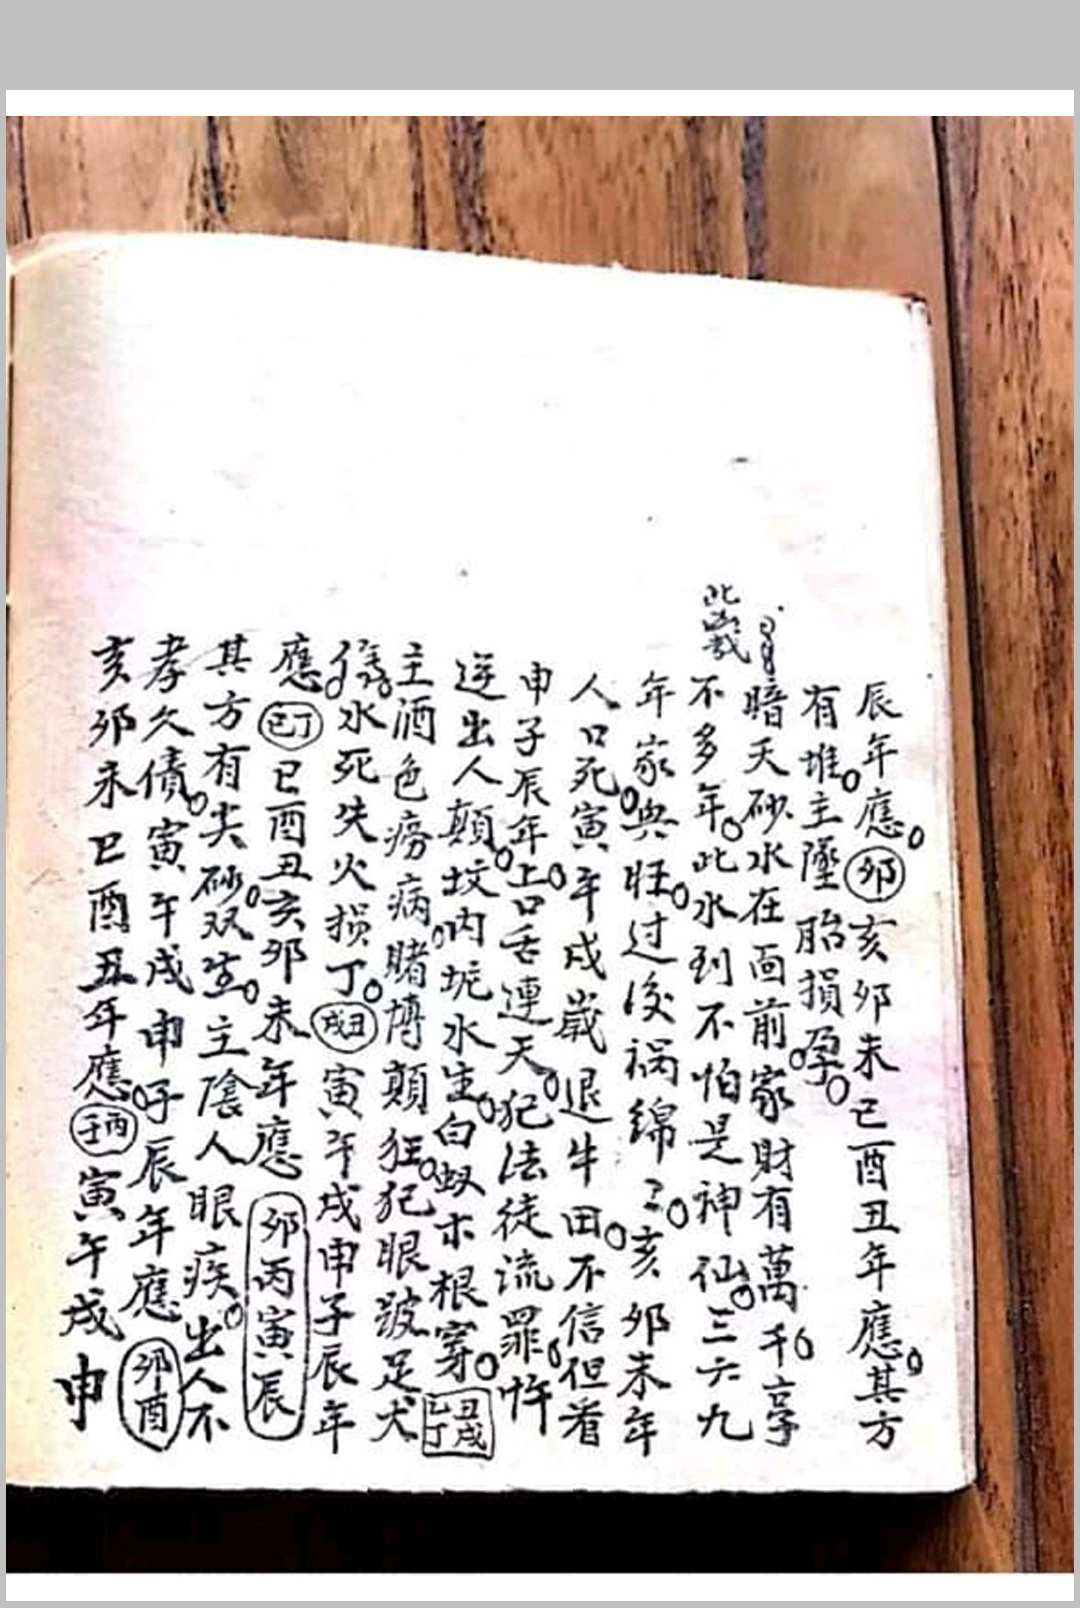 辰年應。卯亥卯未巳酉丑年應。其方
有堆。主墜胎損孕。
暗天砂水在面前。家財有萬千。享
不多年。此水到不怕是神仙。三六九
年家興旺。过後禍綿々。亥卯未年
人口死。寅午戌歲退牛田。不信但看
申子辰年上。口舌連天。犯法徒流罪。忤
逆出人顛。坟内坭水生。白蚁木根穿。丑戌巳丁
主酒色痨病。賭博顛狂。犯眼跛足犬
傷。水死失火损丁。戌丑寅午戌申子辰年
應。巳丁巳酉丑亥卯未年應 卯丙寅辰
其方有尖砂。双生。主陰人眼疾。出人不
孝久債。寅午戌申子辰年應 卯酉
亥卯未巳酉丑年應。壬丙寅午戌申